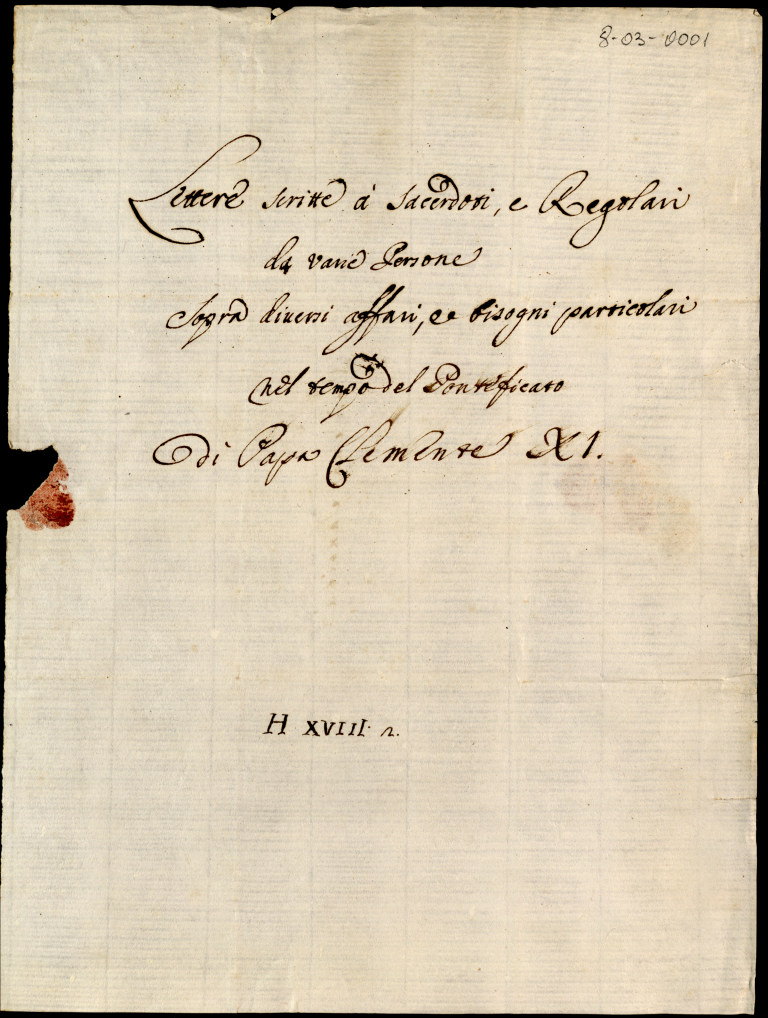 8-03-0001
Lettere scritte à Sacerdoti, e Regolari
da varie Persone
Sopra diversi affari, e bisogni particolari
nel tempo del Pontificato
di Papa Clemente XI.
H XVIII